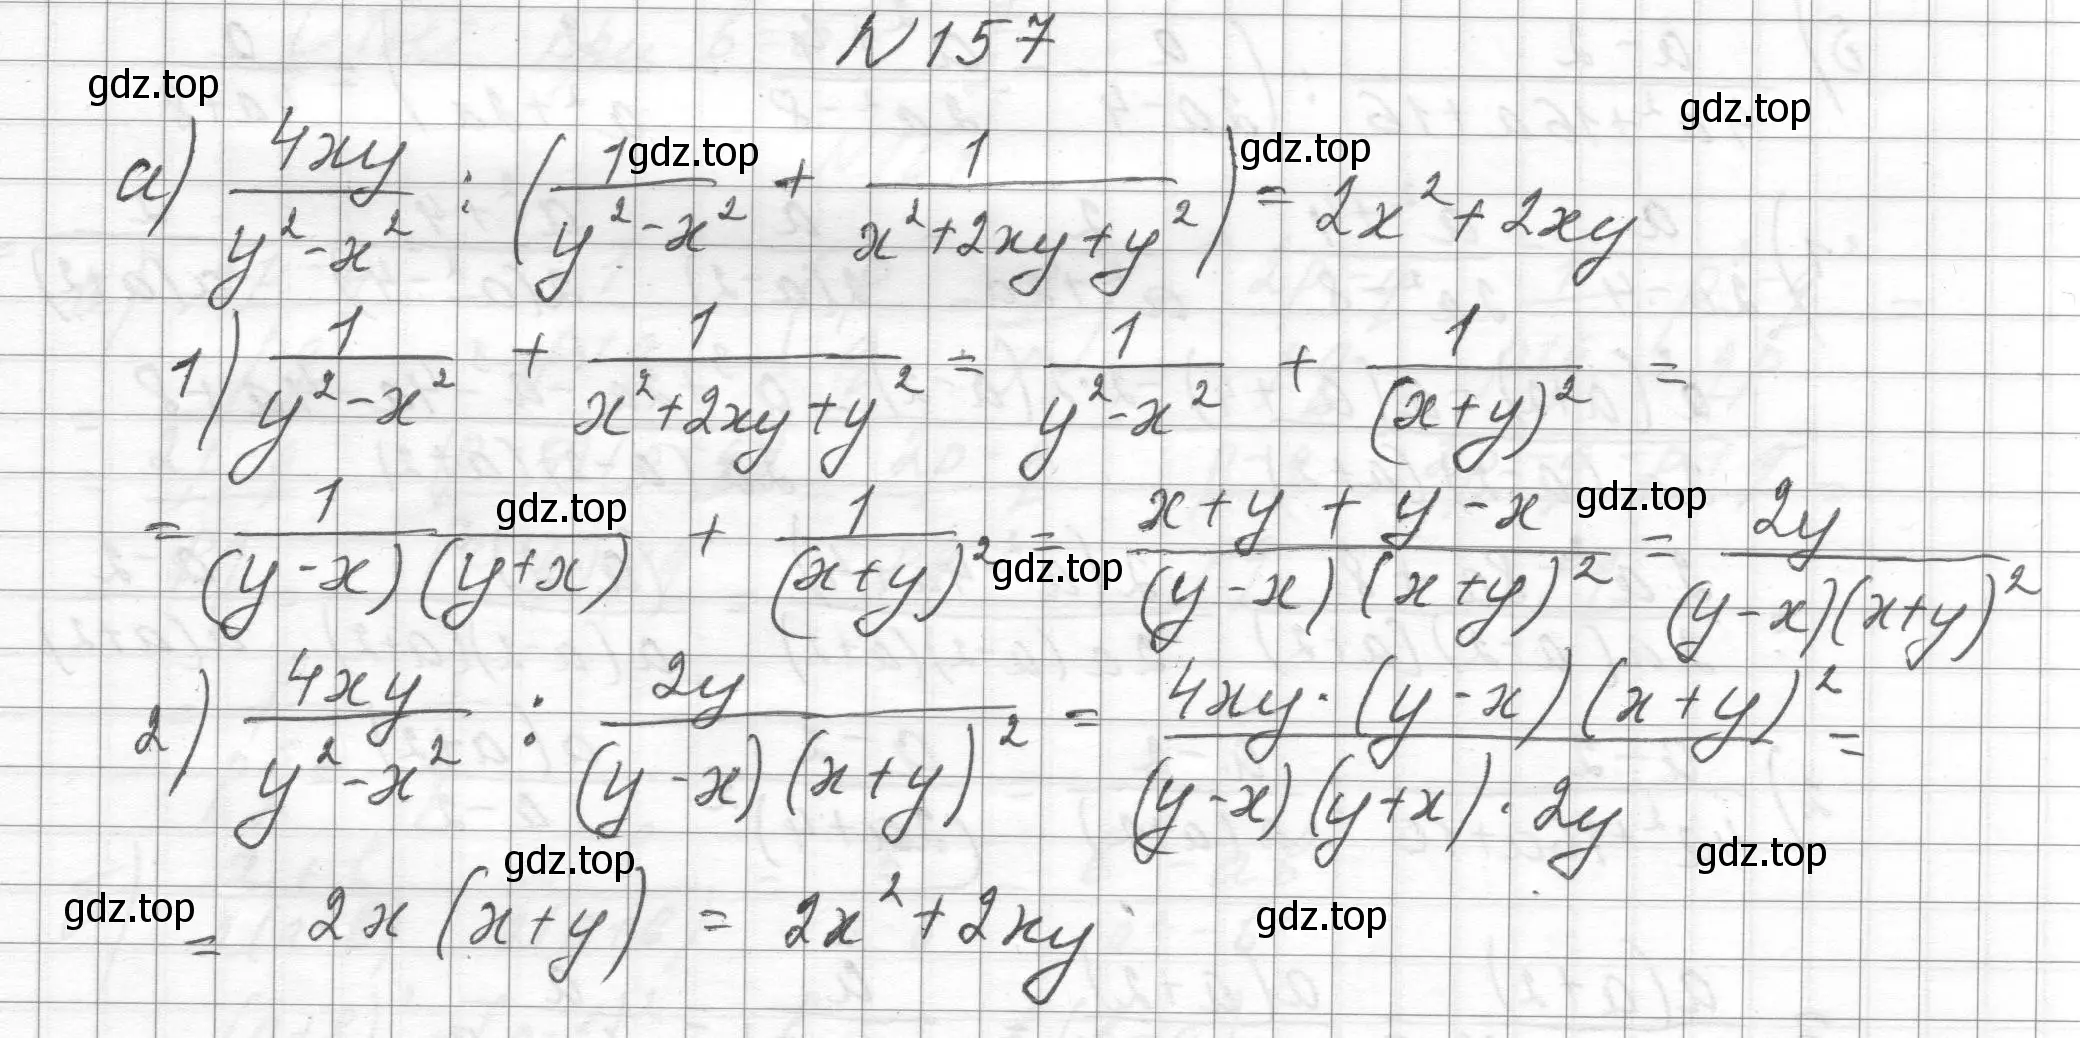 N 157
gdz.top
gdz.top
а) 4xy/(y²-x²) : (1/(y²-x²) + 1/(x²+2xy+y²)) = 2x²+2xy
gdz.top
gdz.top
1) 1/(y²-x²) + 1/(x²+2xy+y²) = 1/(y²-x²) + 1/(x+y)² =
= 1/((y-x)(y+x)) + 1/(x+y)² = (x+y+y-x)/((y-x)(x+y)²) = 2y/((y-x)(x+y)²)
gdz.top
gdz.top
gdz.top
2) 4xy/(y²-x²) : 2y/((y-x)(x+y)²) = (4xy·(y-x)(x+y)²)/((y-x)(y+x)·2y) =
gdz.top
gdz.top
= 2x(x+y) = 2x²+2xy
gdz.top
gdz.top